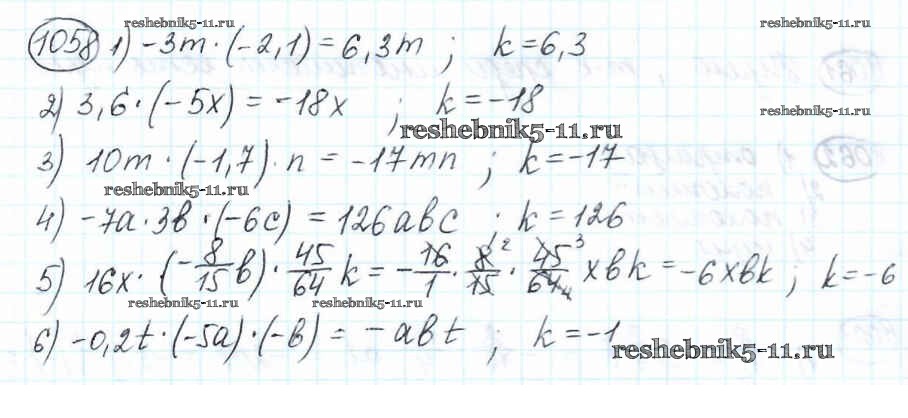 reshebnik5-11.ru reshebnik5-11.ru
1058 1) -3m · (-2,1) = 6,3m ; k = 6,3
2) 3,6 · (-5x) = -18x ; k = -18 reshebnik5-11.ru
reshebnik5-11.ru
3) 10m · (-1,7) · n = -17mn ; k = -17
reshebnik5-11.ru
4) -7a · 3b · (-6c) = 126abc ; k = 126
5) 16x · (-8/15 b) · 45/64 k = -16/1 · 8/15 · 45/64 xbk = -6xbk ; k = -6
reshebnik5-11.ru reshebnik5-11.ru
6) -0,2t · (-5a) · (-b) = -abt ; k = -1
reshebnik5-11.ru